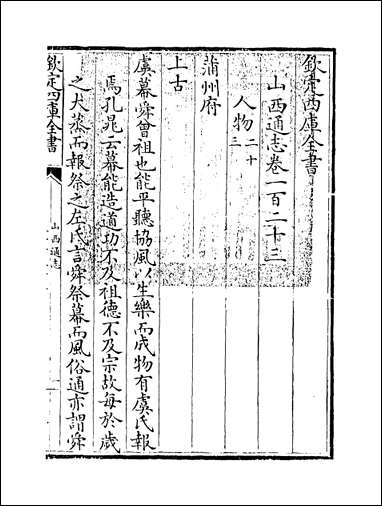 欽定四庫全書
山西通志卷一百二十三
人物二十三
蒲州府
上古
虞幕舜曾祖也能平聽協風以生樂而成物有虞氏報
焉孔晁云幕能造道功不及祖德不及宗故每於歲
之大蒸而報祭之左氏言舜祭幕而風俗通亦謂舜
欽定四庫全書
山西通志